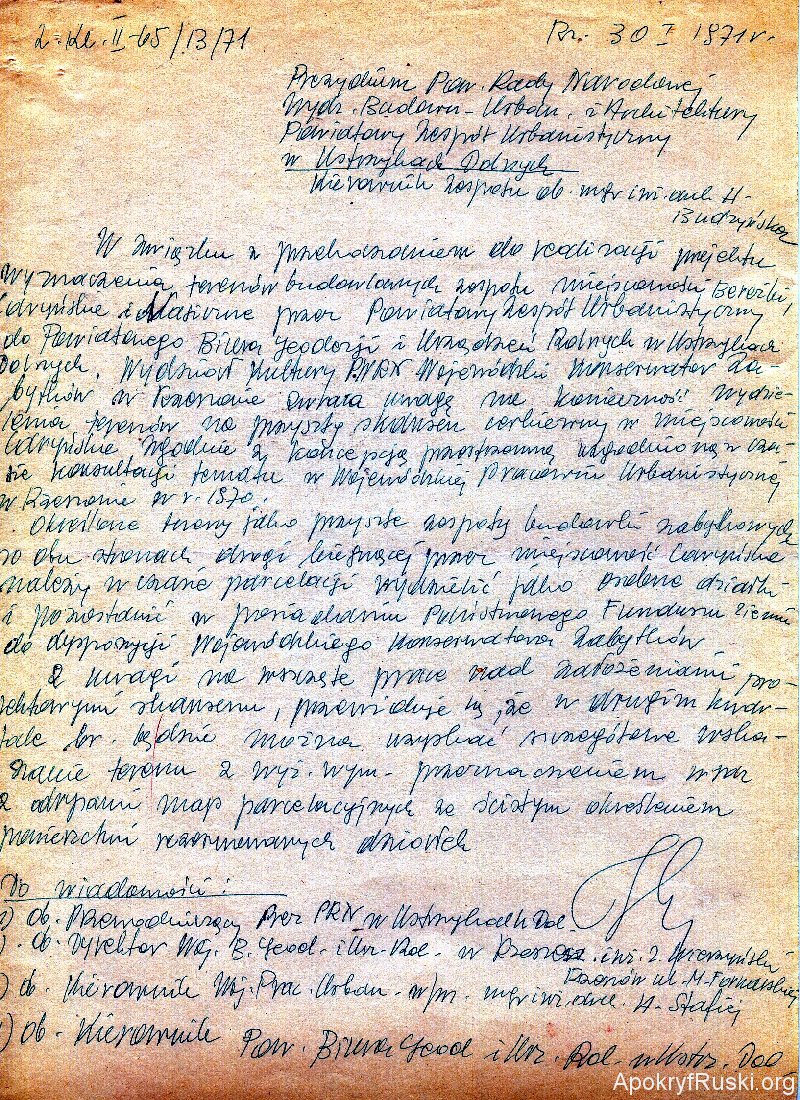 2. Kl. II-65/13/71
Rz. 30 I 1971 r.
Prezydium Pow. Rady Narodowej
Wydz. Budown. Urban. i Architektury
Powiatowy Zespół Urbanistyczny
w Ustrzykach Dolnych
Kierownik zespołu ob. mgr inż. arch. H.
Budzyńska
W związku z przechodzeniem do realizacji projektu
wyznaczenia terenów budowlanych zespołu miejscowości Bereżki,
Caryńskie i Nasiczne przez Powiatowy Zespół Urbanistyczny
do Powiatowego Biura Geodezji i Urządzeń Rolnych w Ustrzykach
Dolnych, Wydział Kultury PWRN Wojewódzki Konserwator Za-
bytków w Rzeszowie zwraca uwagę na konieczność wydzie-
lenia terenów na przyszły skansen cerkiewny w miejscowości
Caryńskie zgodnie z koncepcją przestrzenną uzgodnioną w cza-
sie konsultacji tematu w Wojewódzkiej Pracowni Urbanistycznej
w Rzeszowie w r. 1970.
Określone tereny jako przyszłe zespoły budowli zabytkowych
po obu stronach drogi biegnącej przez miejscowość Caryńskie
należy w czasie parcelacji wydzielić jako osobne działki
i pozostawić w posiadaniu Państwowego Funduszu Ziemi
do dyspozycji Wojewódzkiego Konserwatora Zabytków
Z uwagi na wszczęte prace nad założeniami pro-
jektowymi skansenu, przewiduje się, że w drugim kwar-
tale br. będzie można uzyskać szczegółowe wska-
zanie terenu z wyż. wym. przeznaczeniem wraz
z odrysami map parcelacyjnych ze ścisłym określeniem
powierzchni rezerwowanych działek
Do wiadomości:
1) ob. Przewodniczący Prez PRN w Ustrzykach Dol.
) ob. Dyrektor Woj. B. Geod. i Urz. Rol. w Rzesz. inż. Z.
Rzeszów ul. M. Fornalskiej
) ob. Kierownik Woj. Prac. Urban. w/m. mgr inż. arch. H. Stafiej
) ob. Kierownik Pow. Biura Geod i Urz. Rol. w Ustrz. Dol.
ApokryfRuski.org